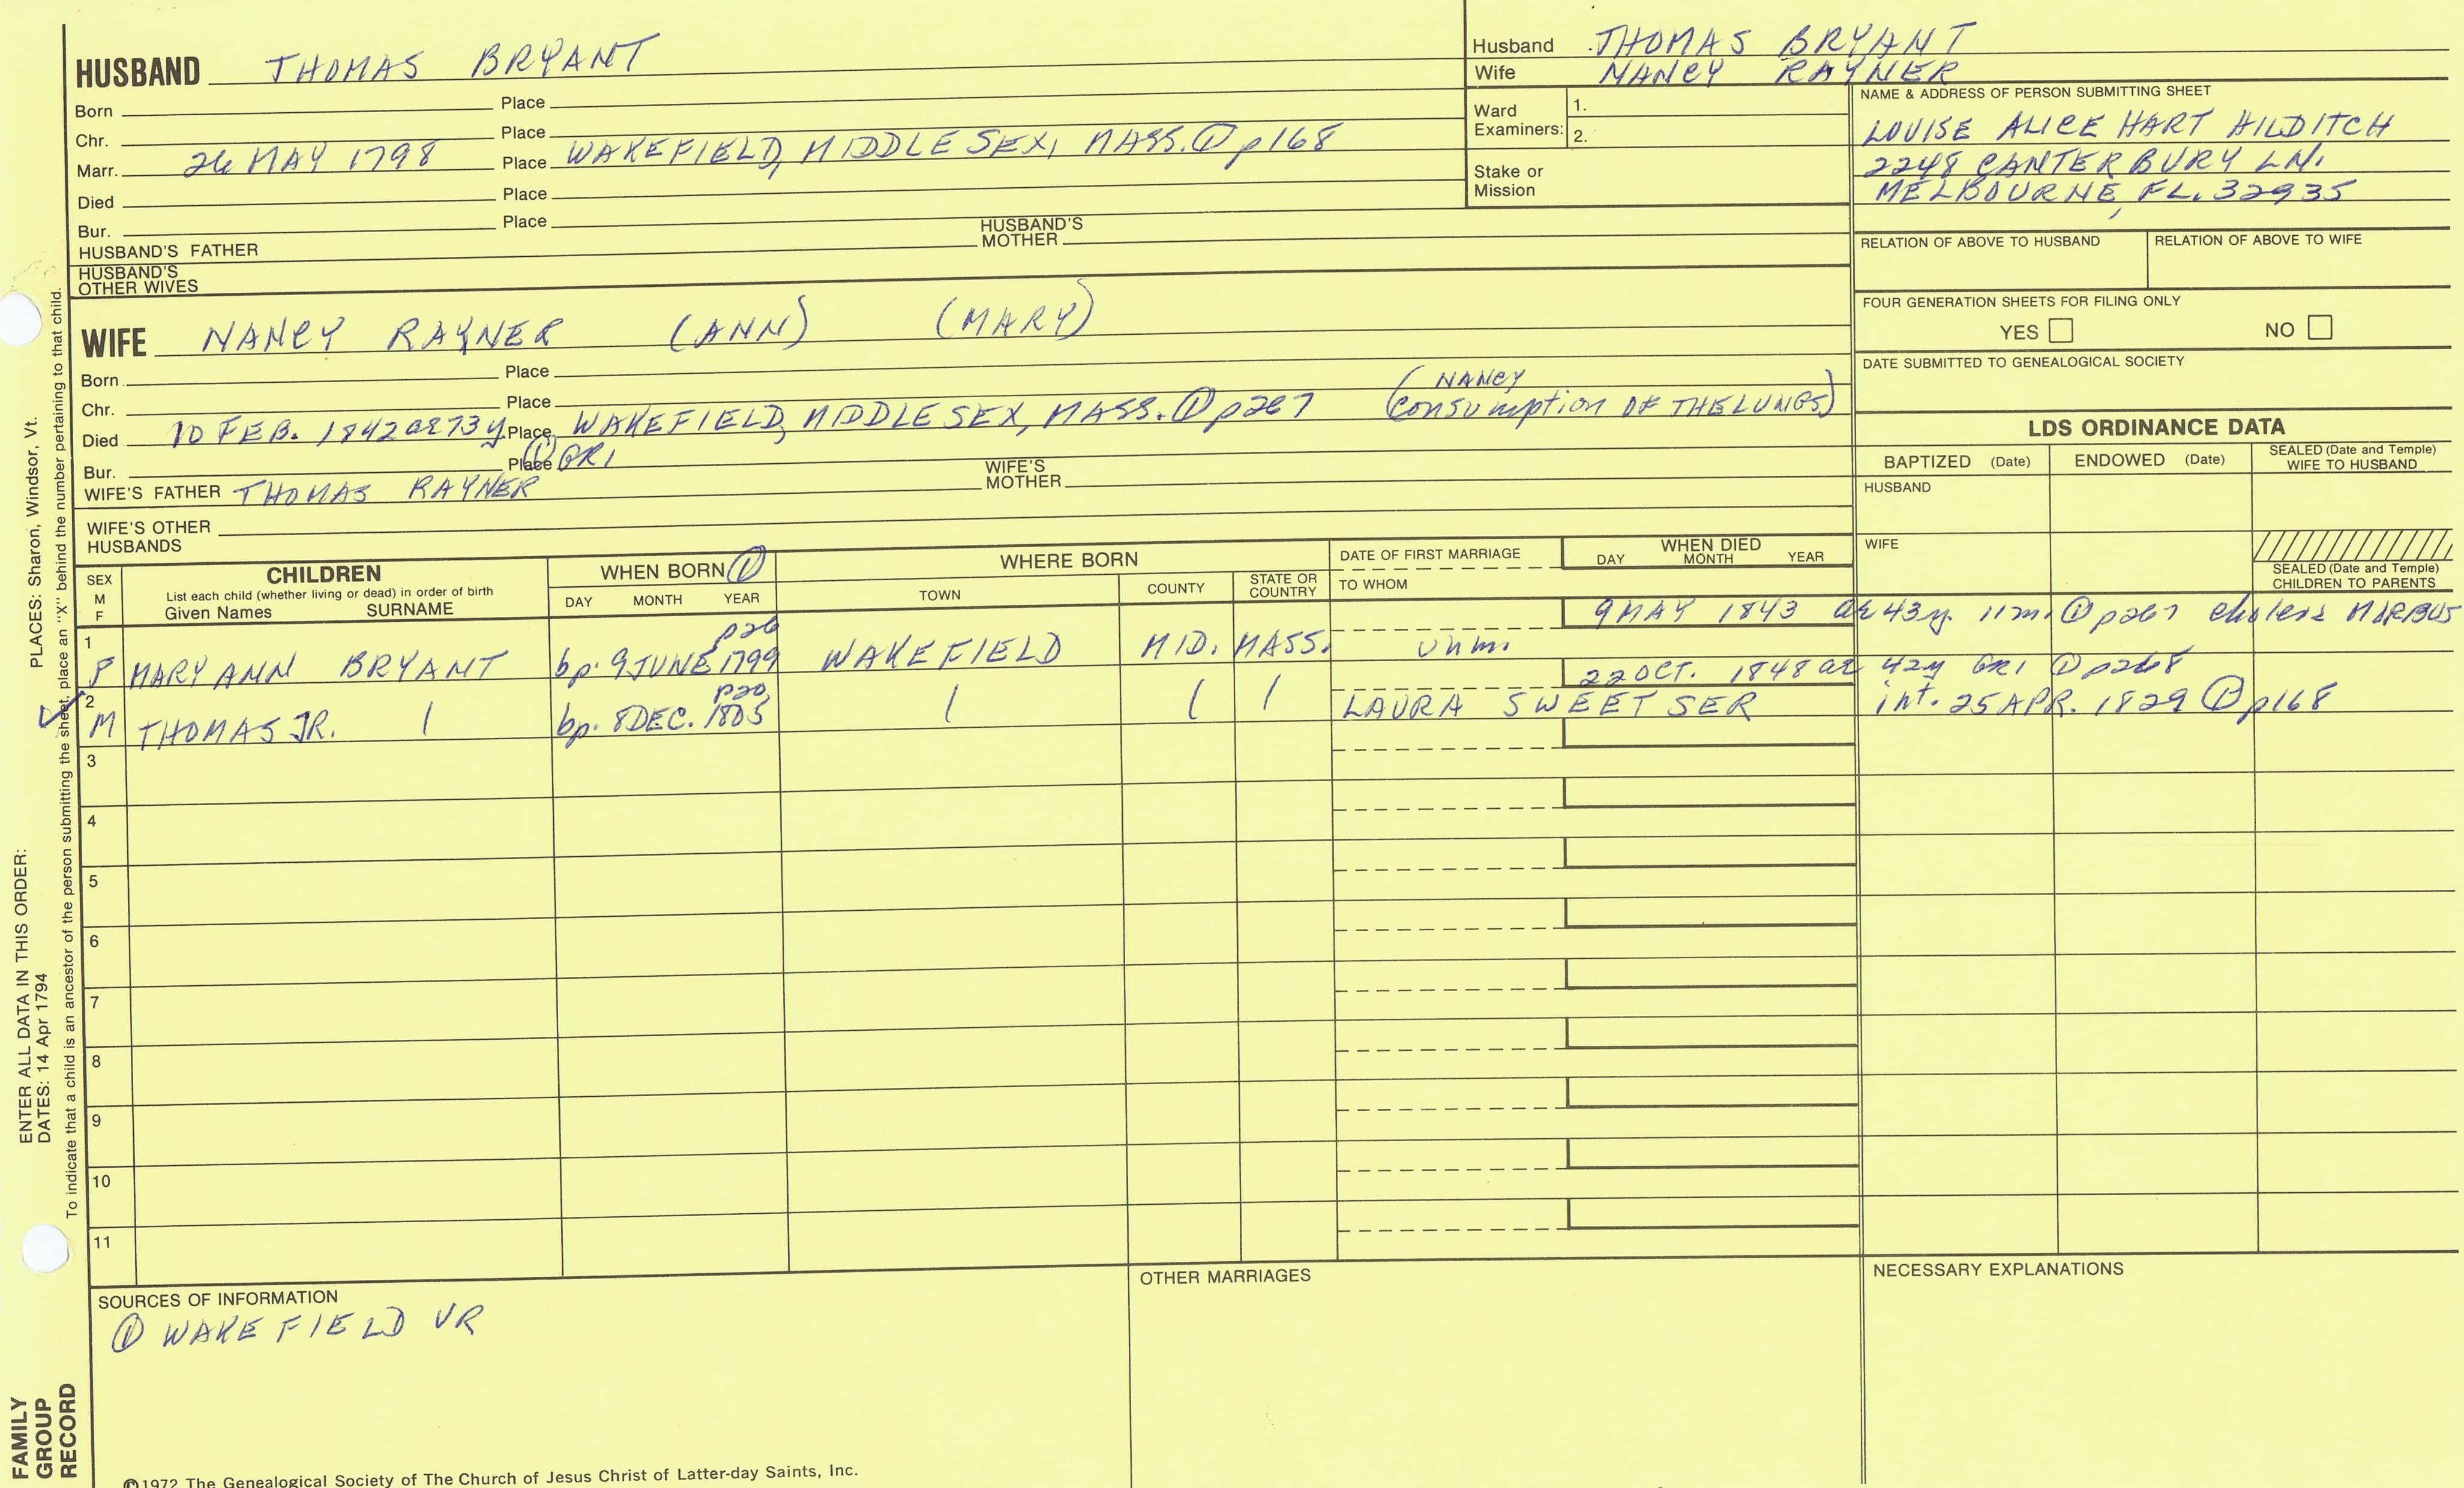 HUSBAND THOMAS BRYANT
Born Place
Chr. Place
Marr. 26 MAY 1798 Place WAKEFIELD, MIDDLESEX, MASS. ① p168
Died Place
Bur. Place
HUSBAND'S FATHER HUSBAND'S MOTHER
HUSBAND'S OTHER WIVES
Husband THOMAS BRYANT
Wife NANCY RAYNER
Ward Examiners: 1.
2.
Stake or Mission
NAME & ADDRESS OF PERSON SUBMITTING SHEET
LOUISE ALICE HART HILDITCH
2248 CANTERBURY LN.
MELBOURNE, FL. 32935
RELATION OF ABOVE TO HUSBAND RELATION OF ABOVE TO WIFE
FOUR GENERATION SHEETS FOR FILING ONLY
YES NO
DATE SUBMITTED TO GENEALOGICAL SOCIETY
WIFE NANCY RAYNER (ANN) (MARY)
Born Place
Chr. Place
Died 10 FEB. 1842 ae 73y Place WAKEFIELD, MIDDLESEX, MASS. ① p267 (NANCY consumption OF THE LUNGS)
Bur. Place ① GR1
WIFE'S FATHER THOMAS RAYNER WIFE'S MOTHER
WIFE'S OTHER HUSBANDS
LDS ORDINANCE DATA
BAPTIZED (Date) ENDOWED (Date) SEALED (Date and Temple) WIFE TO HUSBAND
HUSBAND
WIFE
SEALED (Date and Temple) CHILDREN TO PARENTS
SEX M F
CHILDREN
List each child (whether living or dead) in order of birth
Given Names SURNAME
WHEN BORN ①
DAY MONTH YEAR
WHERE BORN
TOWN COUNTY STATE OR COUNTRY
DATE OF FIRST MARRIAGE
TO WHOM
WHEN DIED
DAY MONTH YEAR
1 p26 9 MAY 1843 ae 43y. 11m. ① p267 cholera MORBUS
F MARY ANN BRYANT bp. 9 JUNE 1799 WAKEFIELD MID. MASS. unm.
2 p20 22 OCT. 1848 ae 42y GR1 ① p268
M THOMAS JR. bp. 8 DEC. 1805 LAURA SWEETSER int. 25 APR. 1829 ① p168
3
4
5
6
7
8
9
10
11
SOURCES OF INFORMATION
① WAKEFIELD VR
OTHER MARRIAGES
NECESSARY EXPLANATIONS
©1972 The Genealogical Society of The Church of Jesus Christ of Latter-day Saints, Inc.
FAMILY GROUP RECORD
ENTER ALL DATA IN THIS ORDER:
DATES: 14 Apr 1794 PLACES: Sharon, Windsor, Vt.
To indicate that a child is an ancestor of the person submitting the sheet, place an "X" behind the number pertaining to that child.